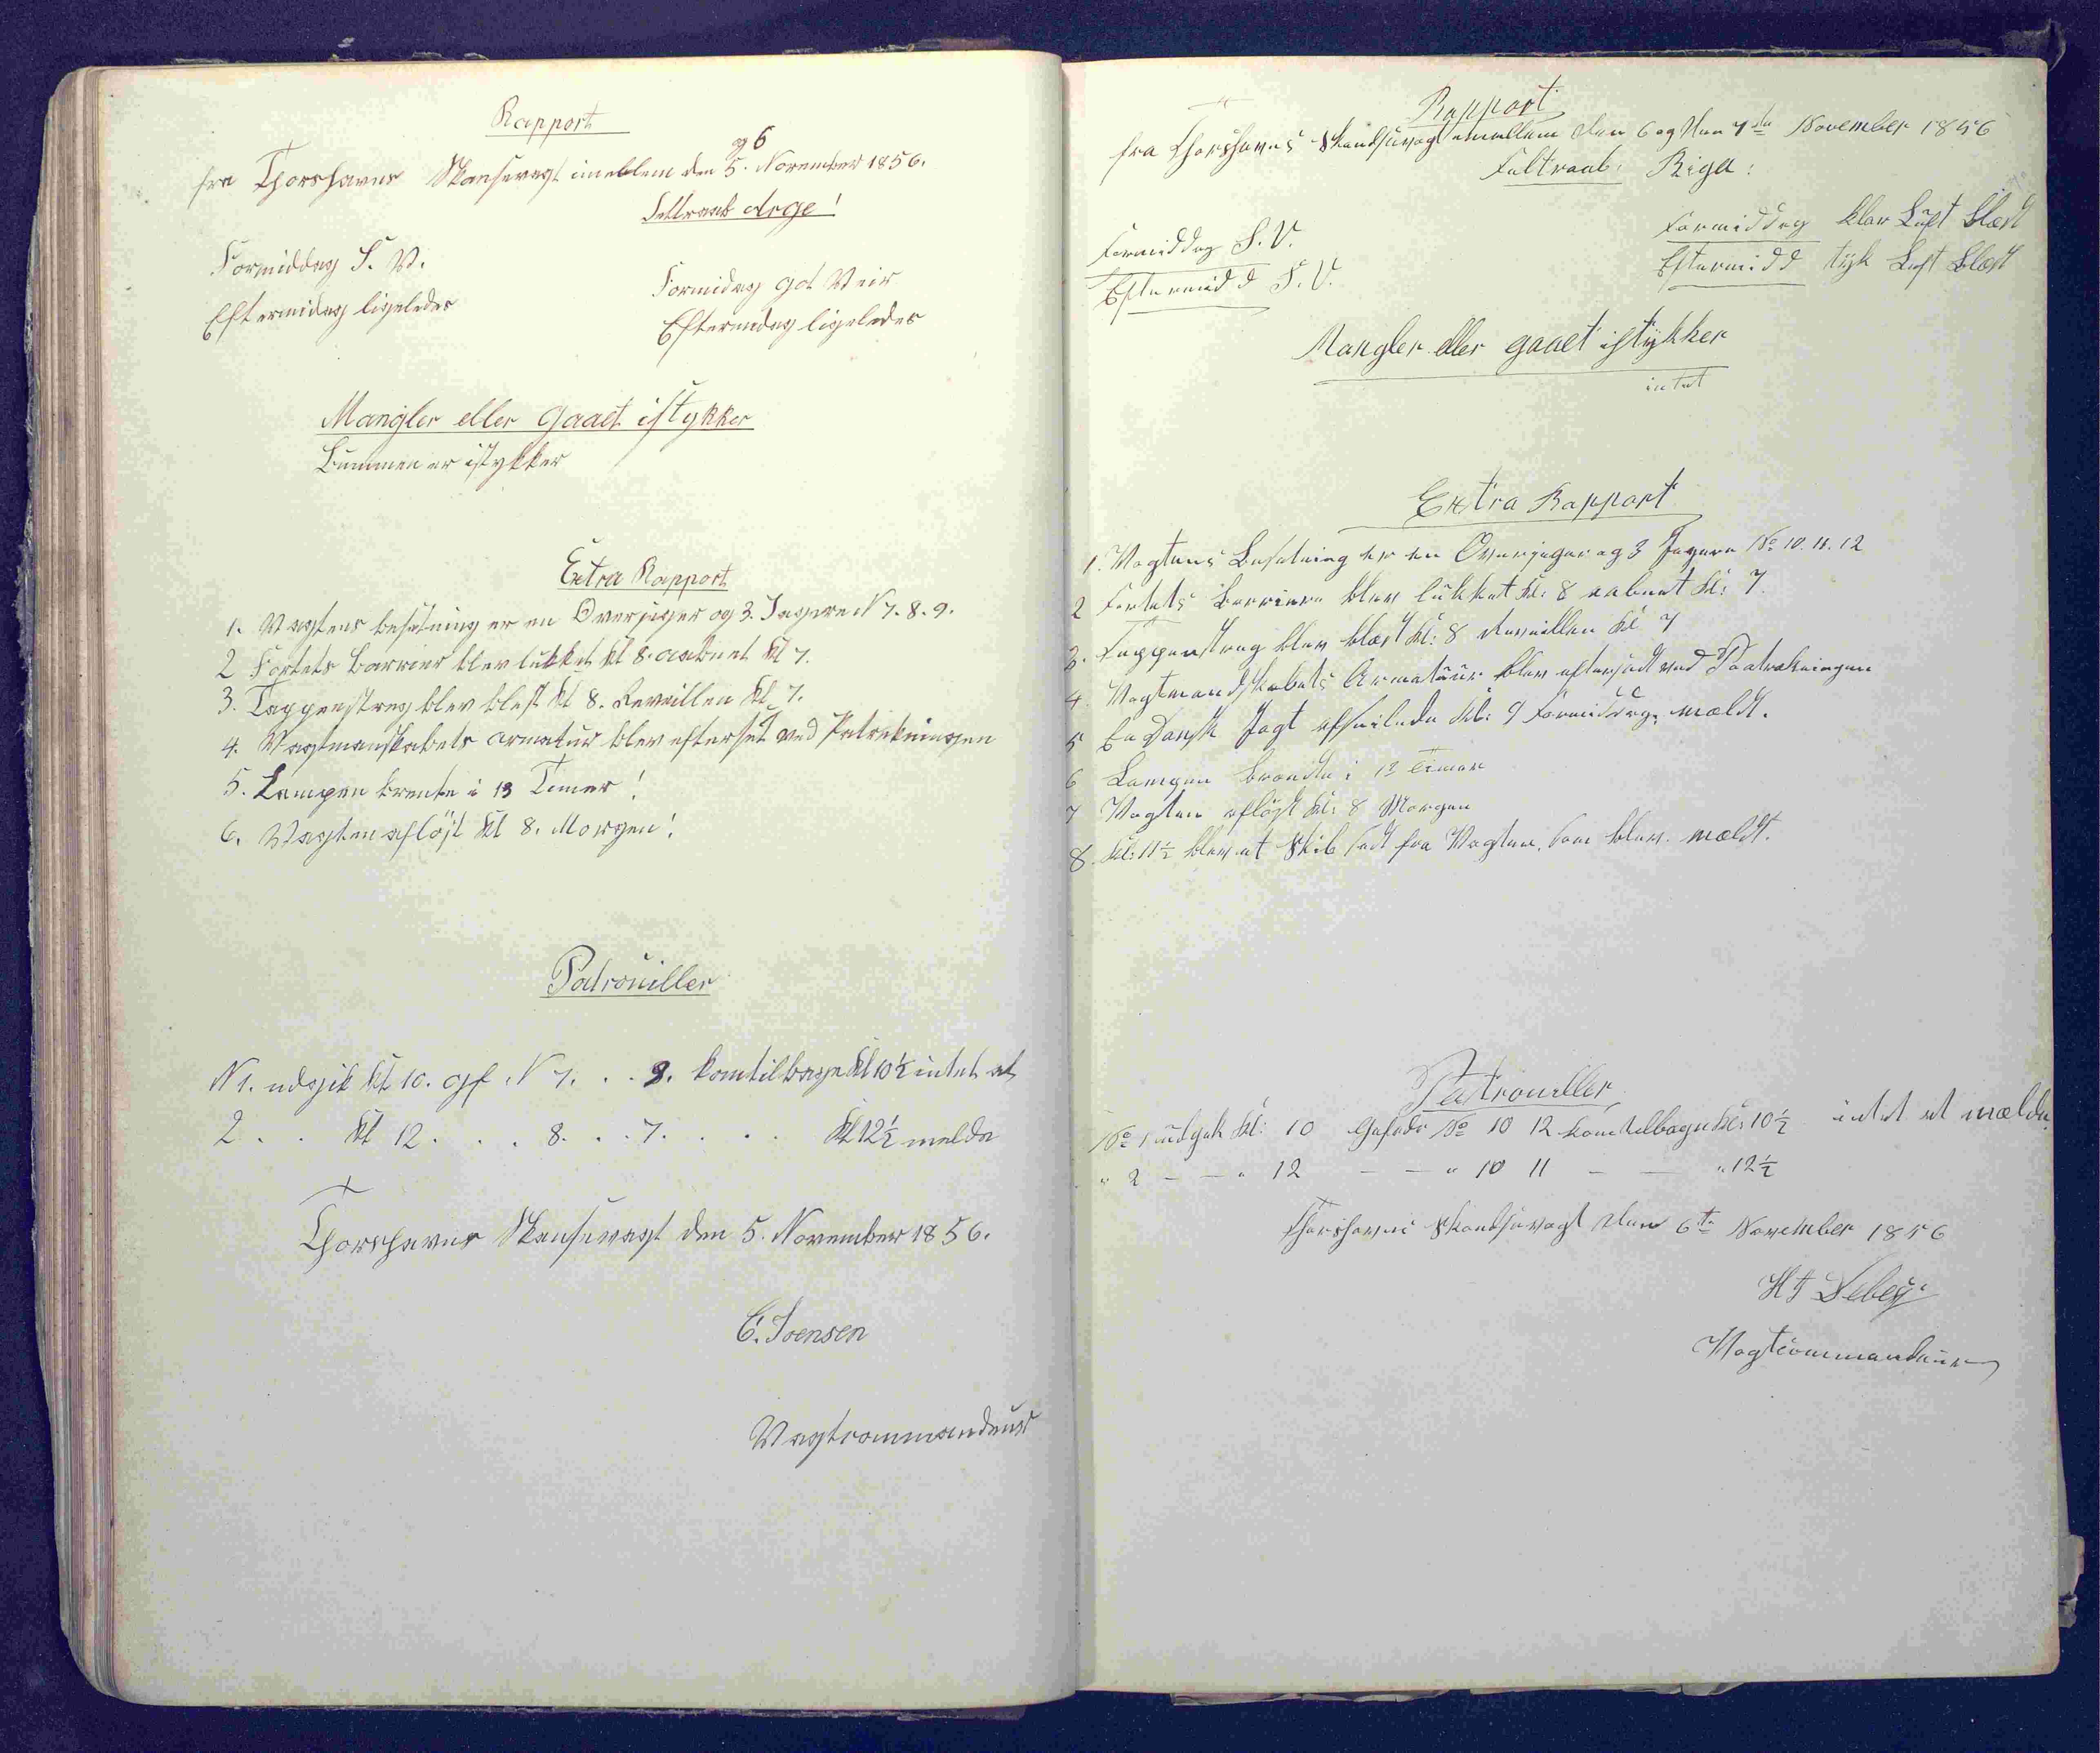 Rapport
og 6
fra Thorshavns Skansevagt imellem den 5. November 1856.
Feltraab Arge!
Formiddag S. V.
Eftermidag ligeledes
Formidag got Veir
Eftermidag ligeledes
Mangler eller gaaet istykker
Bummen er istykker
Extra Rapport
1. Vagtens besetning er en Overjeger og 3. Jegere N 7. 8. 9.
2 Fortets Barrier blev lukket Kl 8. aabnet Kl 7.
3. Tappenstreg blev blest Kl 8. Reveillen Kl 7.
4. Vagtmanskabets armatur blev efterset ved Patrekningen
5. Lampen brente i 13 Timer!
6. Vagten aflöst Kl 8. Morgen!
Patrouiller
N 1. udgik Kl 10. gf. N 7. . . 9. kom tilbage Kl 10½ intet at
2 . . Kl 12 . . . 8. . . 7. . . . . Kl 12½ melde
Thorshavns Skansevagt den 5. November 1856.
C. Joensen
Vagtcommandeur
Rapport
fra Thorshavns Skandsevagt imellem den 6 og den 7de November 1856
Feltraab: Riga:
Formiddag S. V.
Eftermidd S. V.
Formiddag klar Luft Blæst
Eftermidd tyk Luft Blæst
Mangler eller gaaet istykker
intet
Extra Rapport
1. Vagtens Besetning er en Overjeger og 3 Jegere No 10. 11. 12
2 Fortets Barriere blev lukket Kl: 8 aabnet Kl: 7.
3. Tappenstreg blev blæst Kl: 8 Reveillen Kl 7
4. Vagtmandskabets Armatuur blev efterseet ved Paatrekningen
5 En Dansk Jagt afseilede Kl: 9 Formiddag. mældt.
6 Lampen brændte i 12 Timer
7 Vagten aflöst Kl: 8 Morgen
8. Kl: 11½ blev et Skib seet fra Vagten, som blev mældt.
Patrouiller
No 1 udgik Kl: 10 Gefreder No 10 12 kom tilbage Kl: 10½ intet at mælde
" 2 — — " 12 — — " 10 11 — — " 12½
Thorshavns Skandsevagt den 6te November 1856
Vagtcommandeur